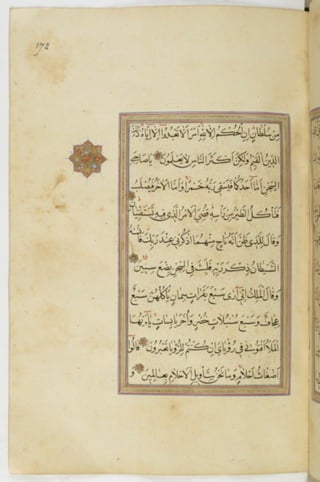 مِن سُلْطَانٍ اِنِ الْحُكْمُ اِلَّا لِلّٰهِ اَمَرَ اَلَّا تَعْبُدُوا اِلَّا اِيَّاهُ ذٰلِكَ
الدِّينُ الْقَيِّمُ وَلٰكِنَّ اَكْثَرَ النَّاسِ لَا يَعْلَمُونَ يَا صَاحِبَيِ
السِّجْنِ اَمَّا اَحَدُكُمَا فَيَسْقِي رَبَّهُ خَمْرًا وَاَمَّا الْاٰخَرُ فَيُصْلَبُ
فَتَاْكُلُ الطَّيْرُ مِن رَاْسِهِ قُضِيَ الْاَمْرُ الَّذِي فِيهِ تَسْتَفْتِيَانِ
وَقَالَ لِلَّذِي ظَنَّ اَنَّهُ نَاجٍ مِنْهُمَا اذْكُرْنِي عِنْدَ رَبِّكَ فَاَنْسَاهُ
الشَّيْطَانُ ذِكْرَ رَبِّهِ فَلَبِثَ فِي السِّجْنِ بِضْعَ سِنِينَ
وَقَالَ الْمَلِكُ اِنِّي اَرٰى سَبْعَ بَقَرَاتٍ سِمَانٍ يَاْكُلُهُنَّ سَبْعٌ
عِجَافٌ وَسَبْعَ سُنْبُلَاتٍ خُضْرٍ وَاُخَرَ يَابِسَاتٍ يَا اَيُّهَا
الْمَلَاُ اَفْتُونِي فِي رُؤْيَايَ اِن كُنْتُمْ لِلرُّؤْيَا تَعْبُرُونَ قَالُوا
اَضْغَاثُ اَحْلَامٍ وَمَا نَحْنُ بِتَاْوِيلِ الْاَحْلَامِ بِعَالِمِينَ وَ